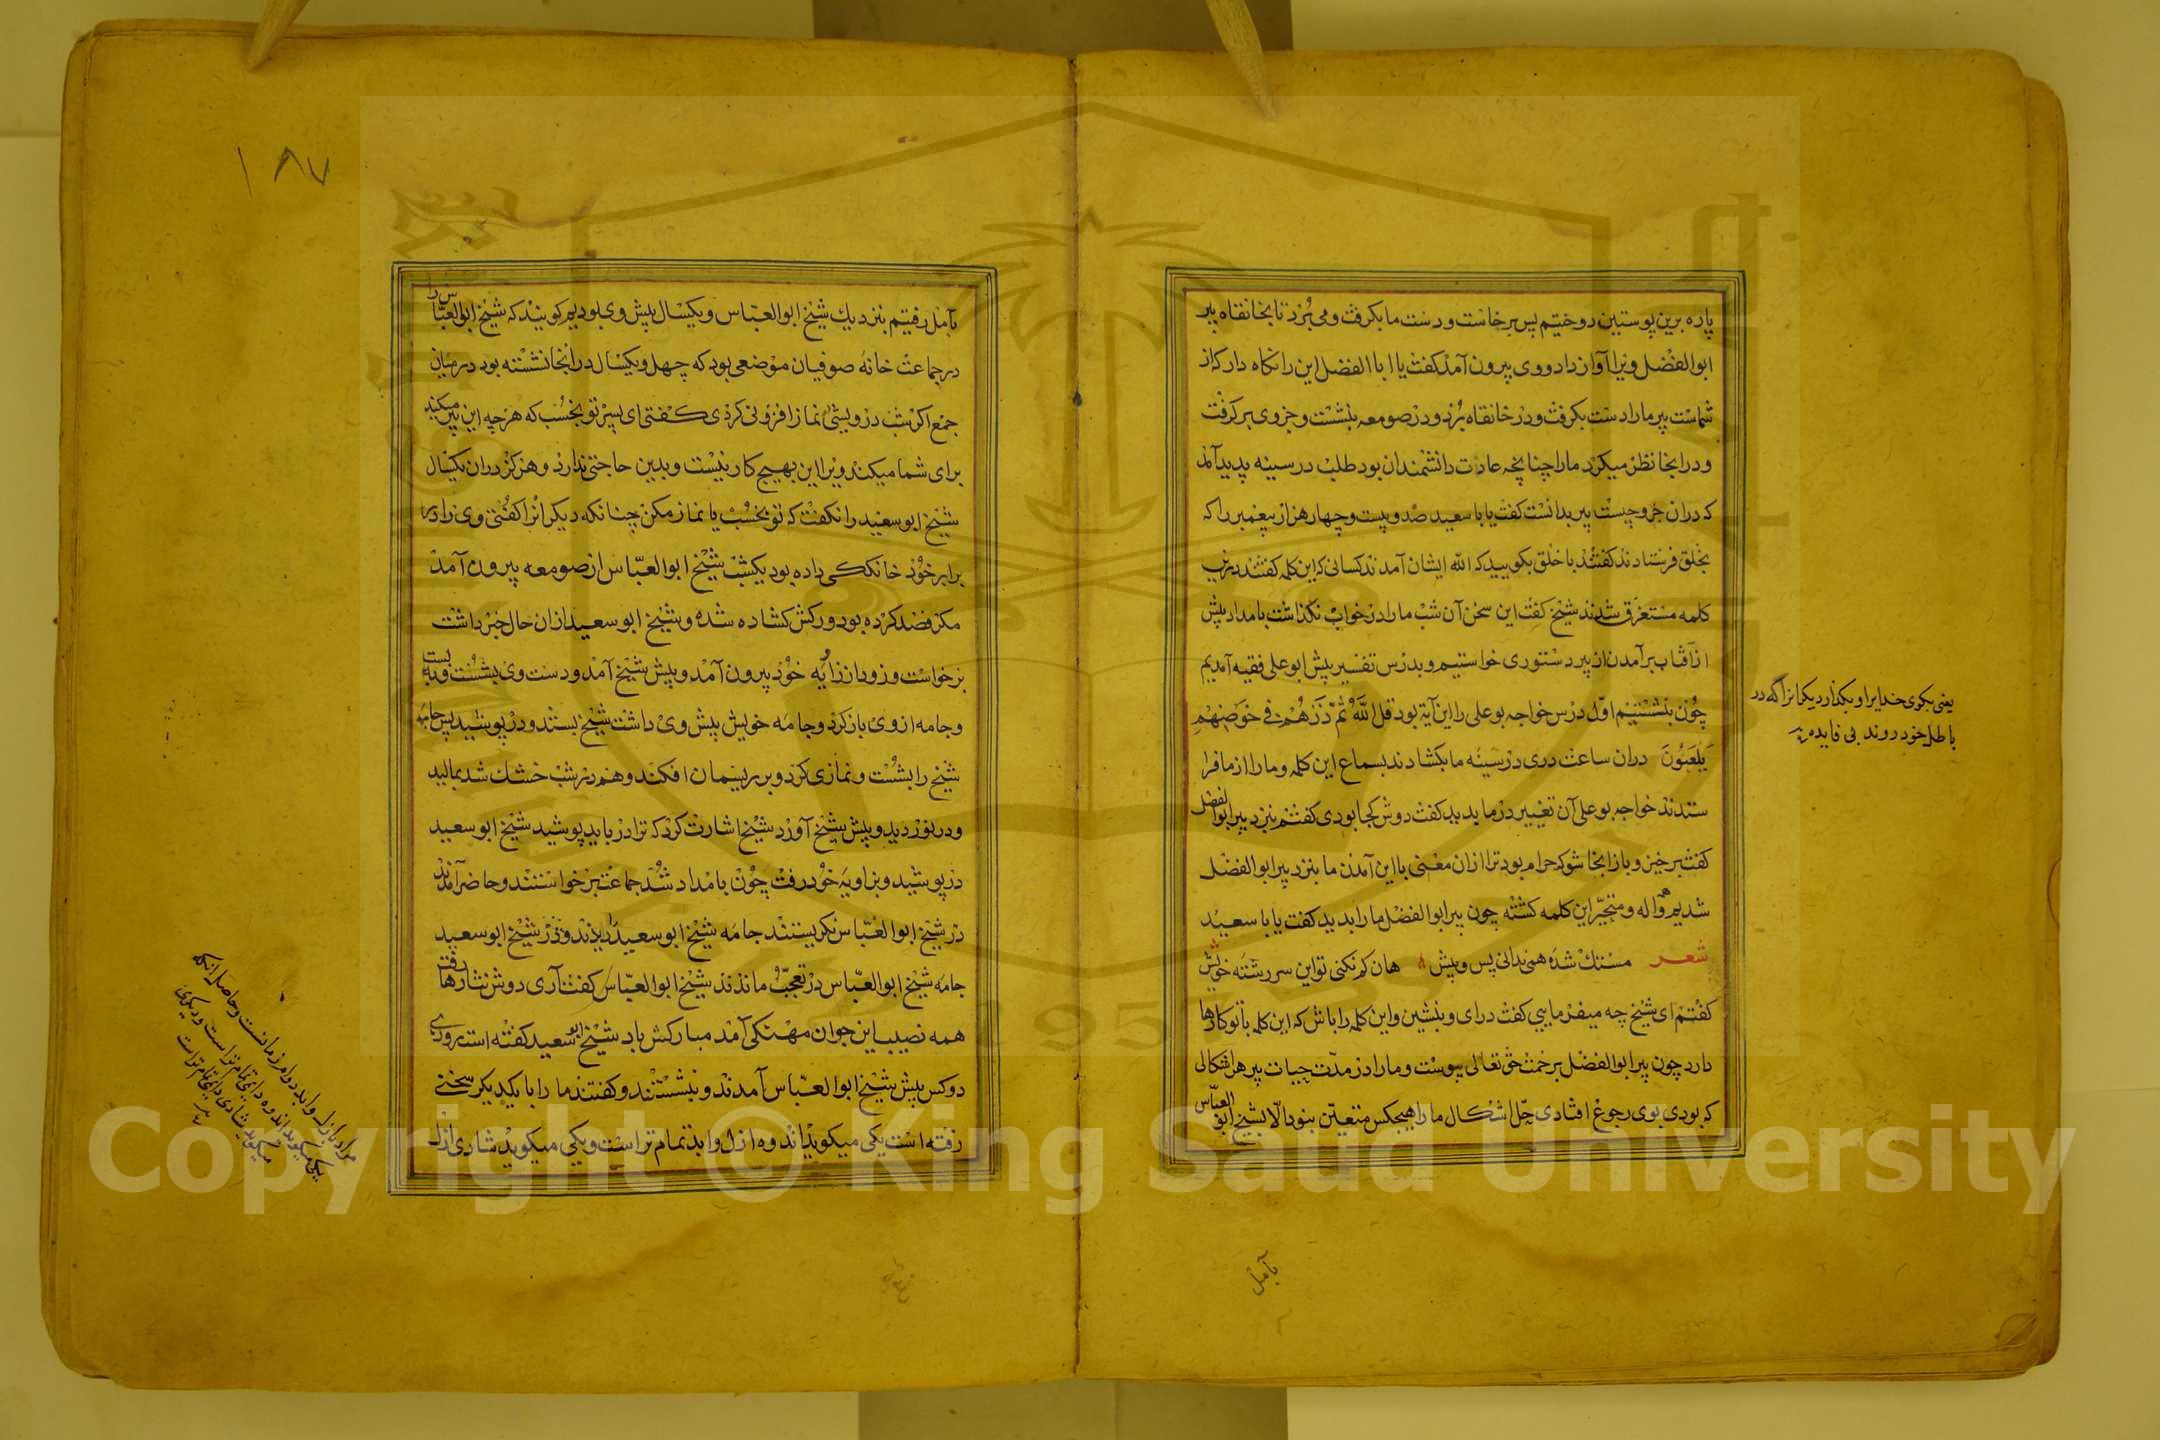 پاره برین پوستین دوختیم پس برخاست و دست ما بکرفت و می برد تا بخانقاه پیر
ابوالفضل ویرا آواز داد و وی بیرون آمد کفت یا ابا الفضل این را نکاه دار که از
شماست پیر ما را دست بکرفت و در خانقاه برد و در صومعه بنشست و جزوی برکرفت
و در انجا نظر میکرد ما را چنانچه عادت دانشمندان بود طلب در سینه پدید آمد
که دران جزو چیست پیر بدانست کفت یا با سعید صد و بیست و چهار هزار پیغمبر را که
بخلق فرستادند کفتند با خلق بکویید که الله ایشان آمدند کسانی که این کلمه کفتند درین
کلمه مستغرق شدند شیخ کفت این سخن آن شب ما را در خواب نکذاشت بامداد پیش
از آفتاب برآمدن از پیر دستوری خواستیم و بدرس تفسیر پیش ابو علی فقیه آمدیم
چون بنشستیم اول درس خواجه بو علی را این آیة بود قل اللّه ثمّ ذرهم فی خوضهم
یلعبون دران ساعت دری در سینه ما بکشادند بسماع این کلمه و ما را از ما فرا
ستدند خواجه بو علی آن تغییر در ما بدید کفت دوش کجا بودی کفتم بنزد پیر ابوالفضل
کفت برخیز و باز انجا شو که حرام بود ترا ازان معنی با این آمدن ما بنزد پیر ابوالفضل
شدیم واله و متحیر همه این کلمه کشته چون پیر ابوالفضل ما را بدید کفت یا با سعید
شعر مستک شده همی ندانی پس و پیش هان کم نکنی تو این سر رشته خویش
کفتم ای شیخ چه میفرمایی کفت درای و بنشین و این کلمه را باش که این کلمه با تو کارها
دارد چون پیر ابوالفضل برحمت حق تعالی پیوست و ما را در مدت حیات پیر هر اشکالی
که بودی بوی رجوع افتادی حل اشکال ما را هیچکس متعین نبود الا شیخ ابو العبّاس
یعنی بکوی خدایرا و بکذار دیکرانرا که در
باطل خود روند بی فایده
بآمل
۱۸۷
بآمل رفتیم بنزدیک شیخ ابو العباس و یکسال پیش وی بودیم کویند که شیخ ابو العبّاس را
در جماعت خانه صوفیان موضعی بود که چهل و یکسال در انجا نشسته بود در میان
جمع اکر شب درویشی نماز افزونی کردی کفتی ای پسر تو بخسب که هرچه این پیر میکند
برای شما میکند ویرا این بهیچ کار نیست و بدین حاجتی ندارد و هرکز دران یکسال
شیخ ابو سعید را نکفت که تو بخسب یا نماز مکن چنانکه دیکرانرا کفتی وی را در
برابر خود خانککی داده بود یکشب شیخ ابو العباس از صومعه بیرون آمد
مکر فصد کرده بود و رکش کشاده شده و شیخ ابو سعید ازان حال خبر داشت
برخواست و زود از زاویه خود بیرون آمد و پیش شیخ آمد و دست وی بشست و به بست
و جامه از وی باز کرد و جامه خویش پیش وی داشت شیخ بستد و در پوشید پس جامه
شیخ را بشست و نمازی کرد و بر ریسمان افکند و هم در شب خشک شد بمالید
و در نوردید و پیش شیخ آورد شیخ اشارت کرد که ترا در باید پوشید شیخ ابو سعید
در پوشید و بزاویه خود رفت چون بامداد شد جماعت برخواستند و حاضر آمدند
در شیخ ابو العباس نکریستند جامه شیخ ابو سعید را دیدند و در شیخ ابو سعید
جامه شیخ ابو العباس در تعجب ماندند شیخ ابو العباس کفت آری دوش نثارها رفت
همه نصیب این جوان مهنکی آمد مبارکش باد شیخ ابو سعید کفته است روزی
دو کس پیش شیخ ابو العباس آمدند و بنشستند و کفتند ما را با یکدیکر سخنی
رفته است یکی میکوید اندوه ازل و ابد تمام تراست و یکی میکوید شادی ازل
مراد بازل و ابد دوام زمانست و حاصل آنکه
یکی میکوید اندوه دایمی تمام تراست و دیکری
میکوید شادی دایمی تمام تراست
Copyright © King Saud University